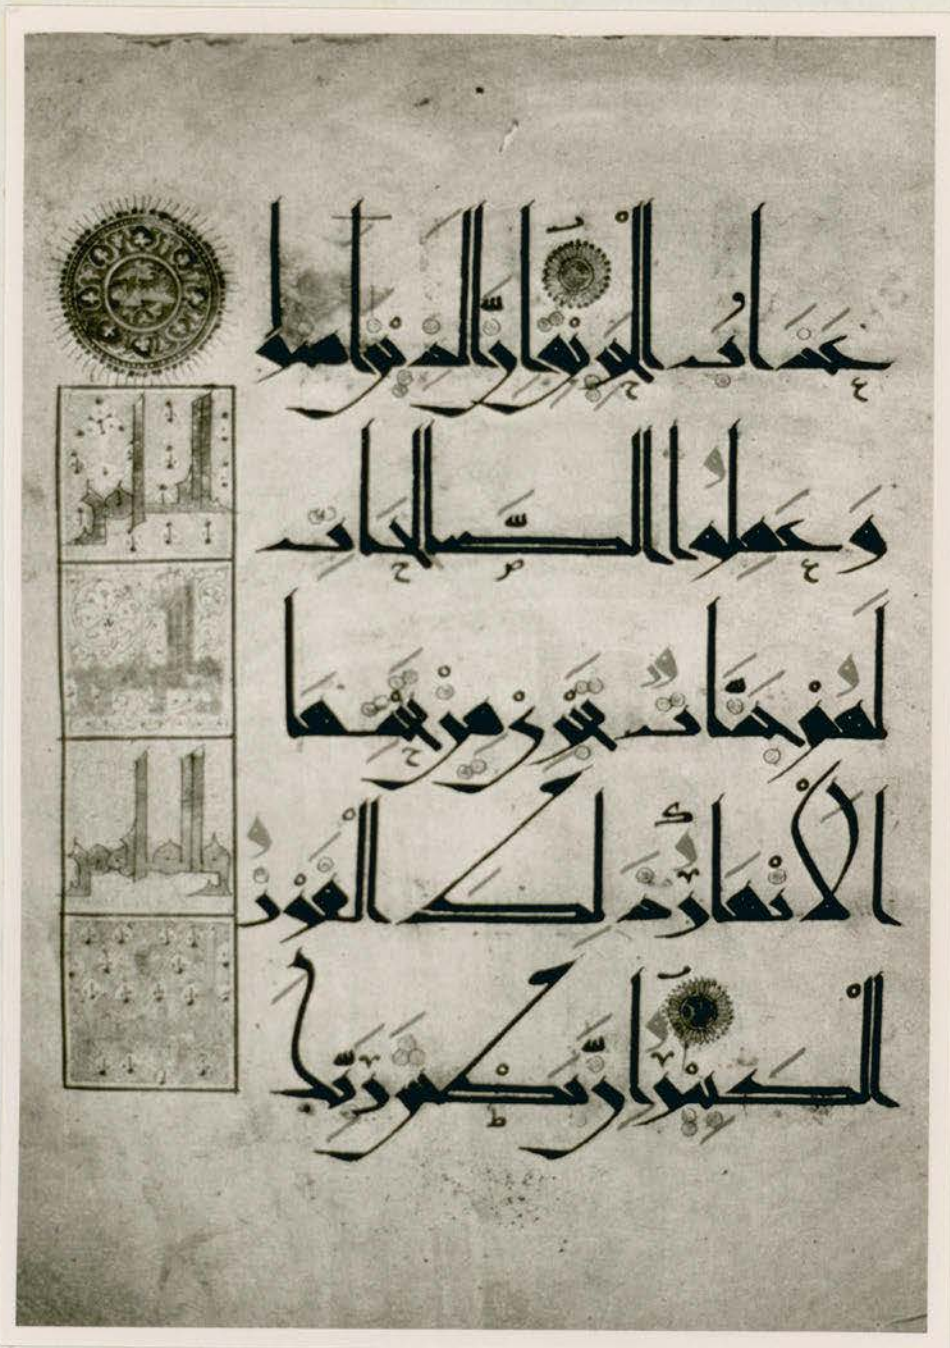 عَذَابُ الْحَرِيقِ إِنَّ الَّذِينَ آمَنُوا
وَعَمِلُوا الصَّالِحَاتِ
لَهُمْ جَنَّاتٌ تَجْرِي مِنْ تَحْتِهَا
الْأَنْهَارُ ذَلِكَ الْفَوْزُ
الْكَبِيرُ إِنَّ بَطْشَ رَبِّكَ